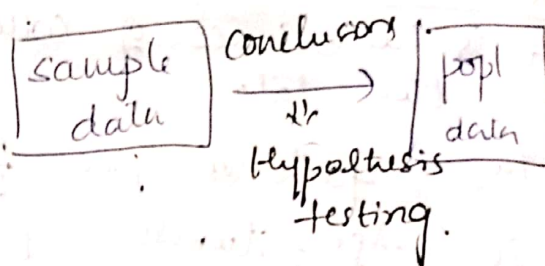 sample
data
conclusions
Hypothesis
testing.
popl
data